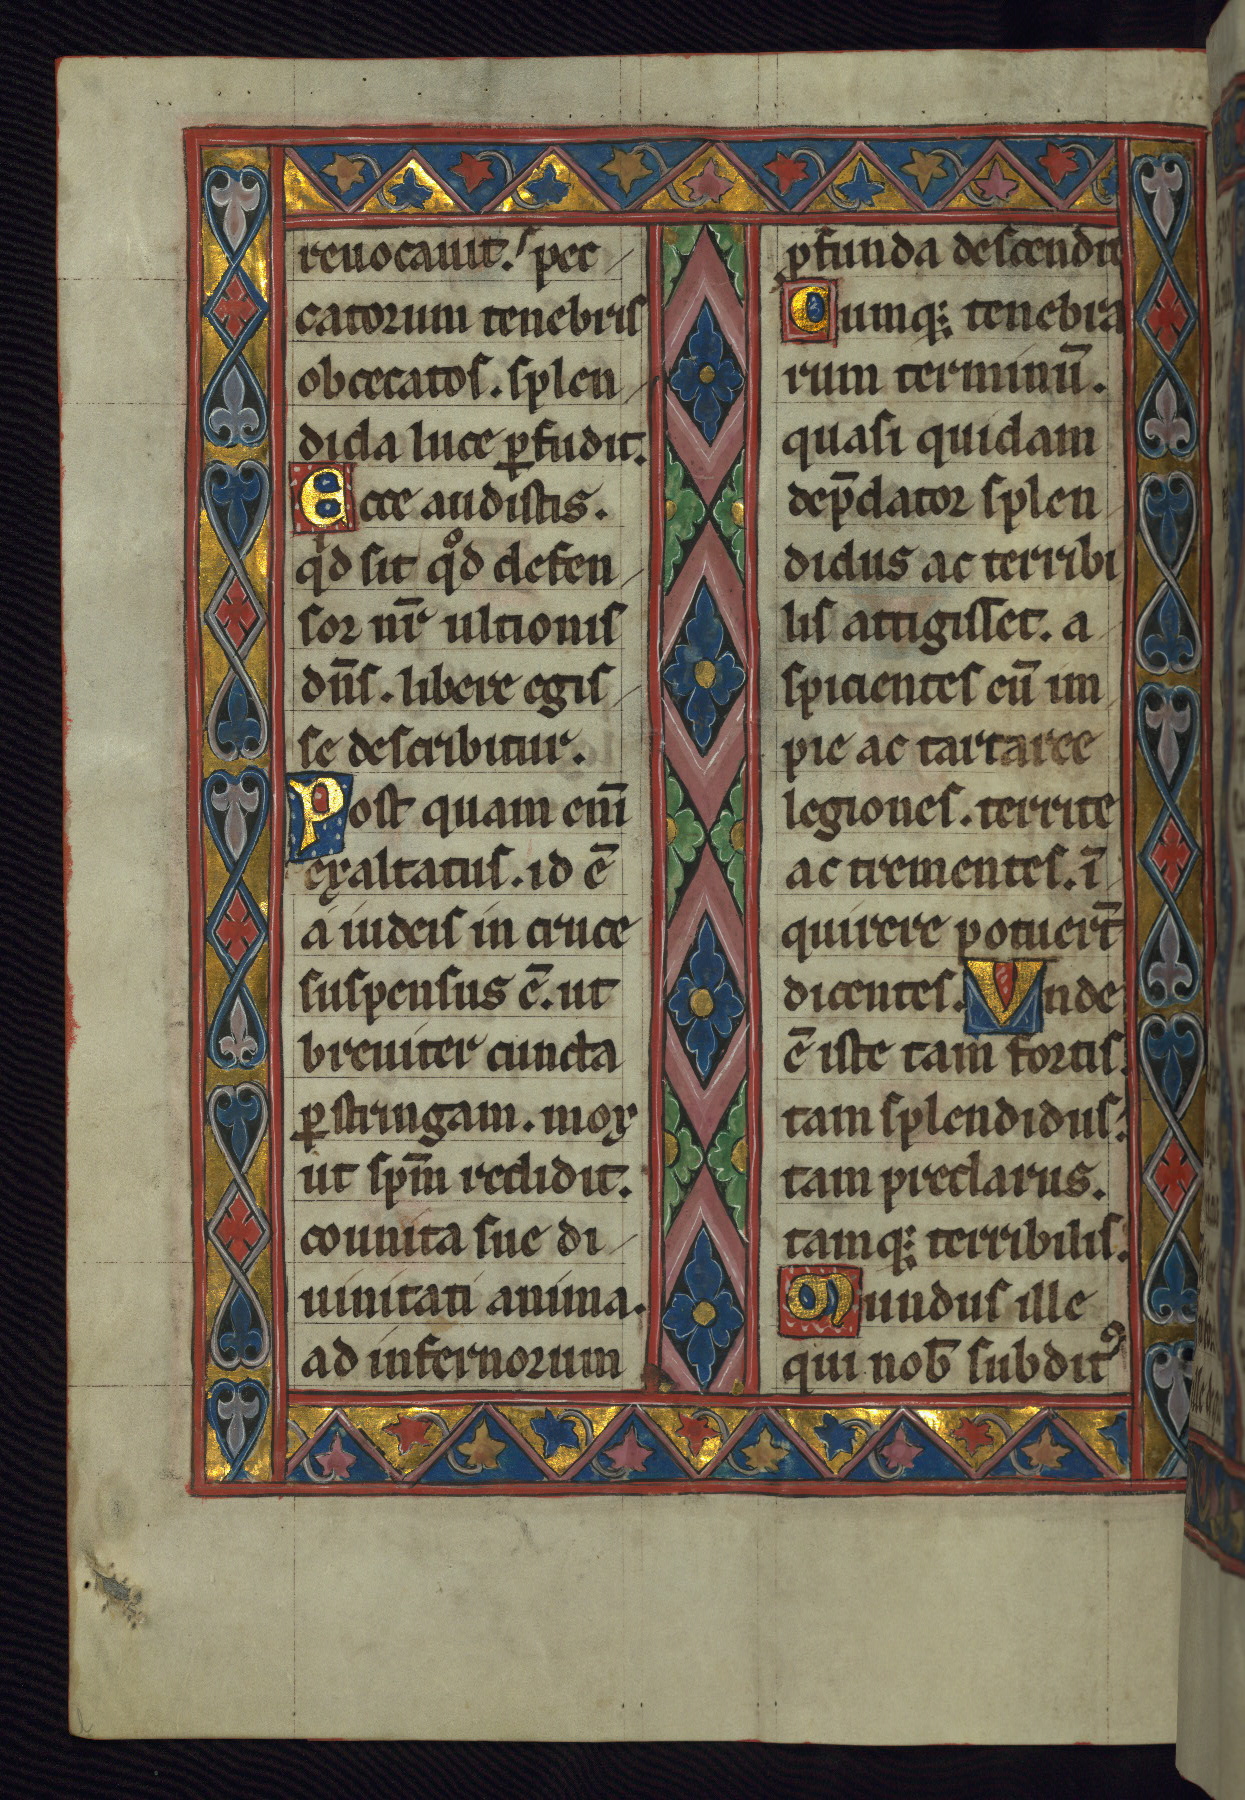 reuocauit. pec
catorum tenebris
obcecatos. splen
dida luce ꝑfudit.
Ecce audistis.
qͥd sit qͦd defen
sor nr̄ ultionis
dn̄s. libere egis
se describitur.
Post quam eni̅
exaltatus. id ē
a iudeis in cruce
suspensus ē. ut
breuiter cuncta
ꝑstringam. mox
ut spm̄ reddidit.
counita sue di
uinitati anima.
ad infernorum
ꝓfunda descendit
Cumq; tenebra
rum terminū.
quasi quidam
dep̄dator splen
didus ac terribi
lis attigisset. a
spicientes eū im
pie ac tartaree
legiones. territe
ac trementes. ī
quirere potuert̄
dicentes. Vnde
ē iste tam fortis.
tam splendidus.
tam preclarus.
tamq; terribilis.
Mundus ille
qui nob̄ subditꝰ